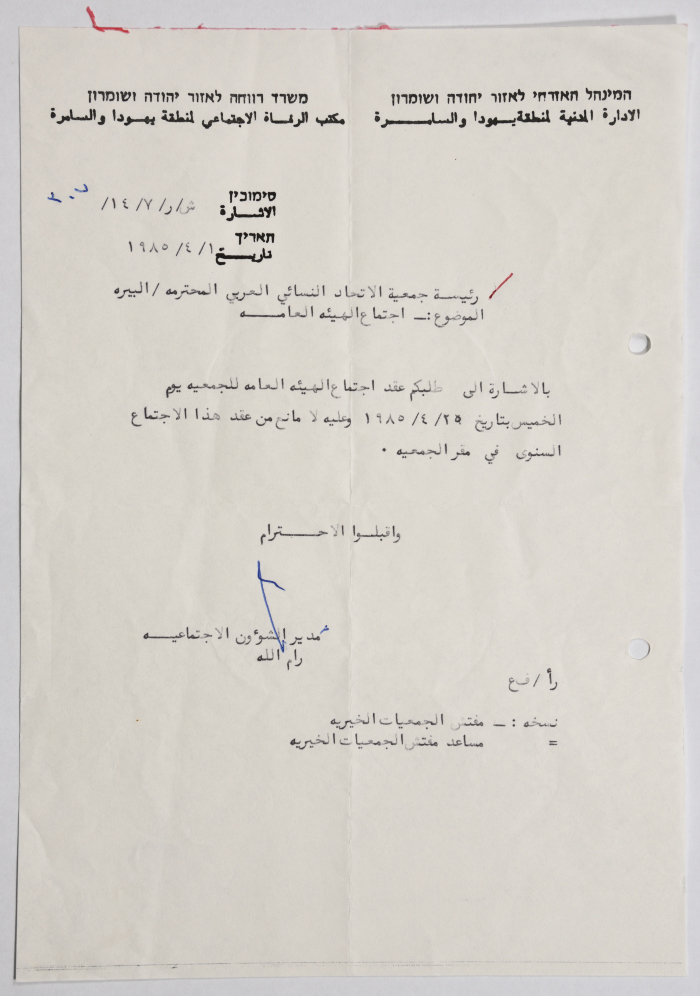 המינהל האזרחי לאזור יהודה ושומרון
الادارة المدنية لمنطقة يهودا والسامرة
משרד רווחה לאזור יהודה ושומרון
مكتب الرفاة الاجتماعي لمنطقة يهودا والسامرة
סימוכין
الاشارة ش/ر/١٤/٧/
תאריך
تاريخ ١٩٨٥/٤/١
رئيسة جمعية الاتحاد النسائي العربي المحترمه /البيره
الموضوع :ـ اجتماع الهيئه العامه
بالاشارة الى طلبكم عقد اجتماع الهيئه العامه للجمعيه يوم
الخميس بتاريخ ١٩٨٥/٤/٢٥ وعليه لا مانع من عقد هذا الاجتماع
السنوى في مقر الجمعيه .
واقبلوا الاحترام
مدير الشوءون الاجتماعيه
رام الله
رأ /فع
نسخه :ـ مفتش الجمعيات الخيريه
= مساعد مفتش الجمعيات الخيريه